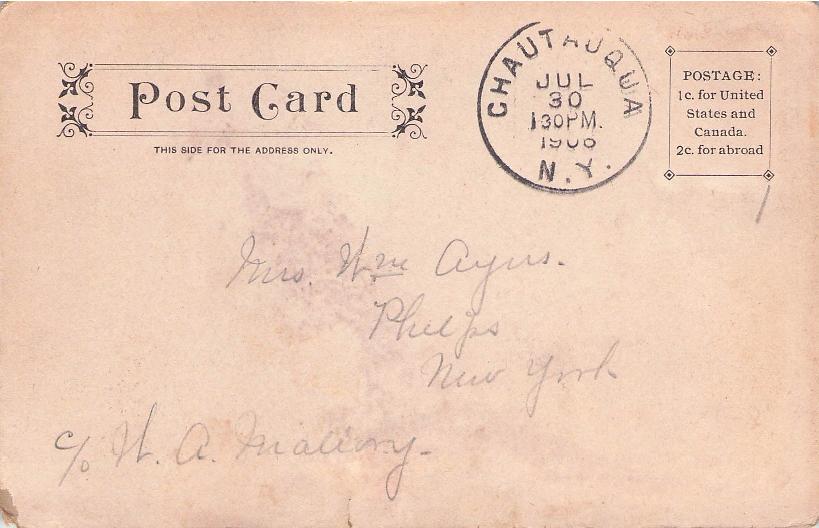 Post Card
THIS SIDE FOR THE ADDRESS ONLY.
CHAUTAUQUA
JUL
30
130PM.
1906
N.Y.
POSTAGE:
1c. for United
States and
Canada.
2c. for abroad
Mrs. Wm Ayers.
Phelps
New York
c/o W. A. Mallory-